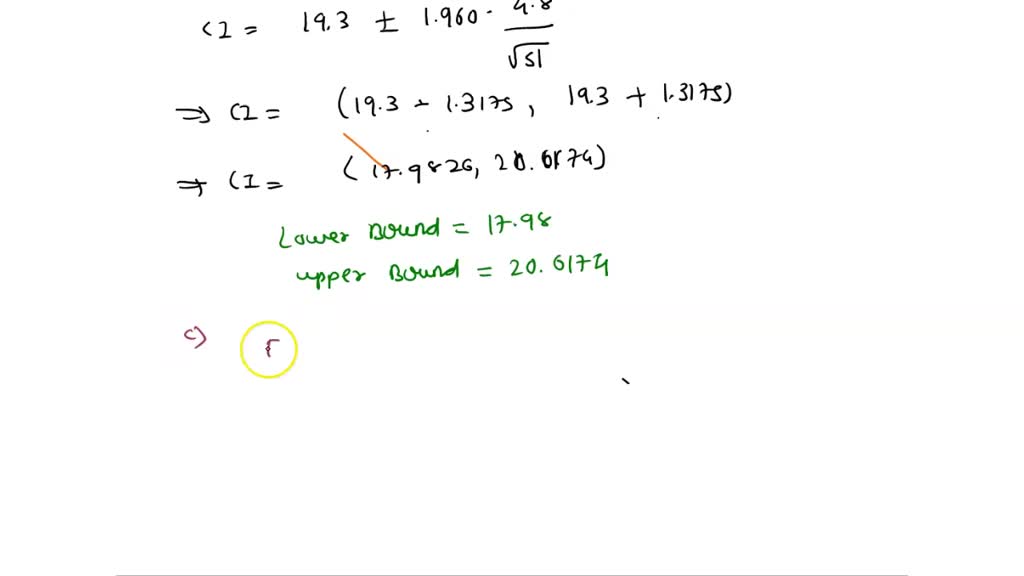 CI = 19.3 ± 1.960 · 4.8
√51
⇒ CI = (19.3 - 1.3175, 19.3 + 1.3175)
⇒ CI = (17.9826, 20.6174)
Lower Bound = 17.98
upper Bound = 20.6174
c)